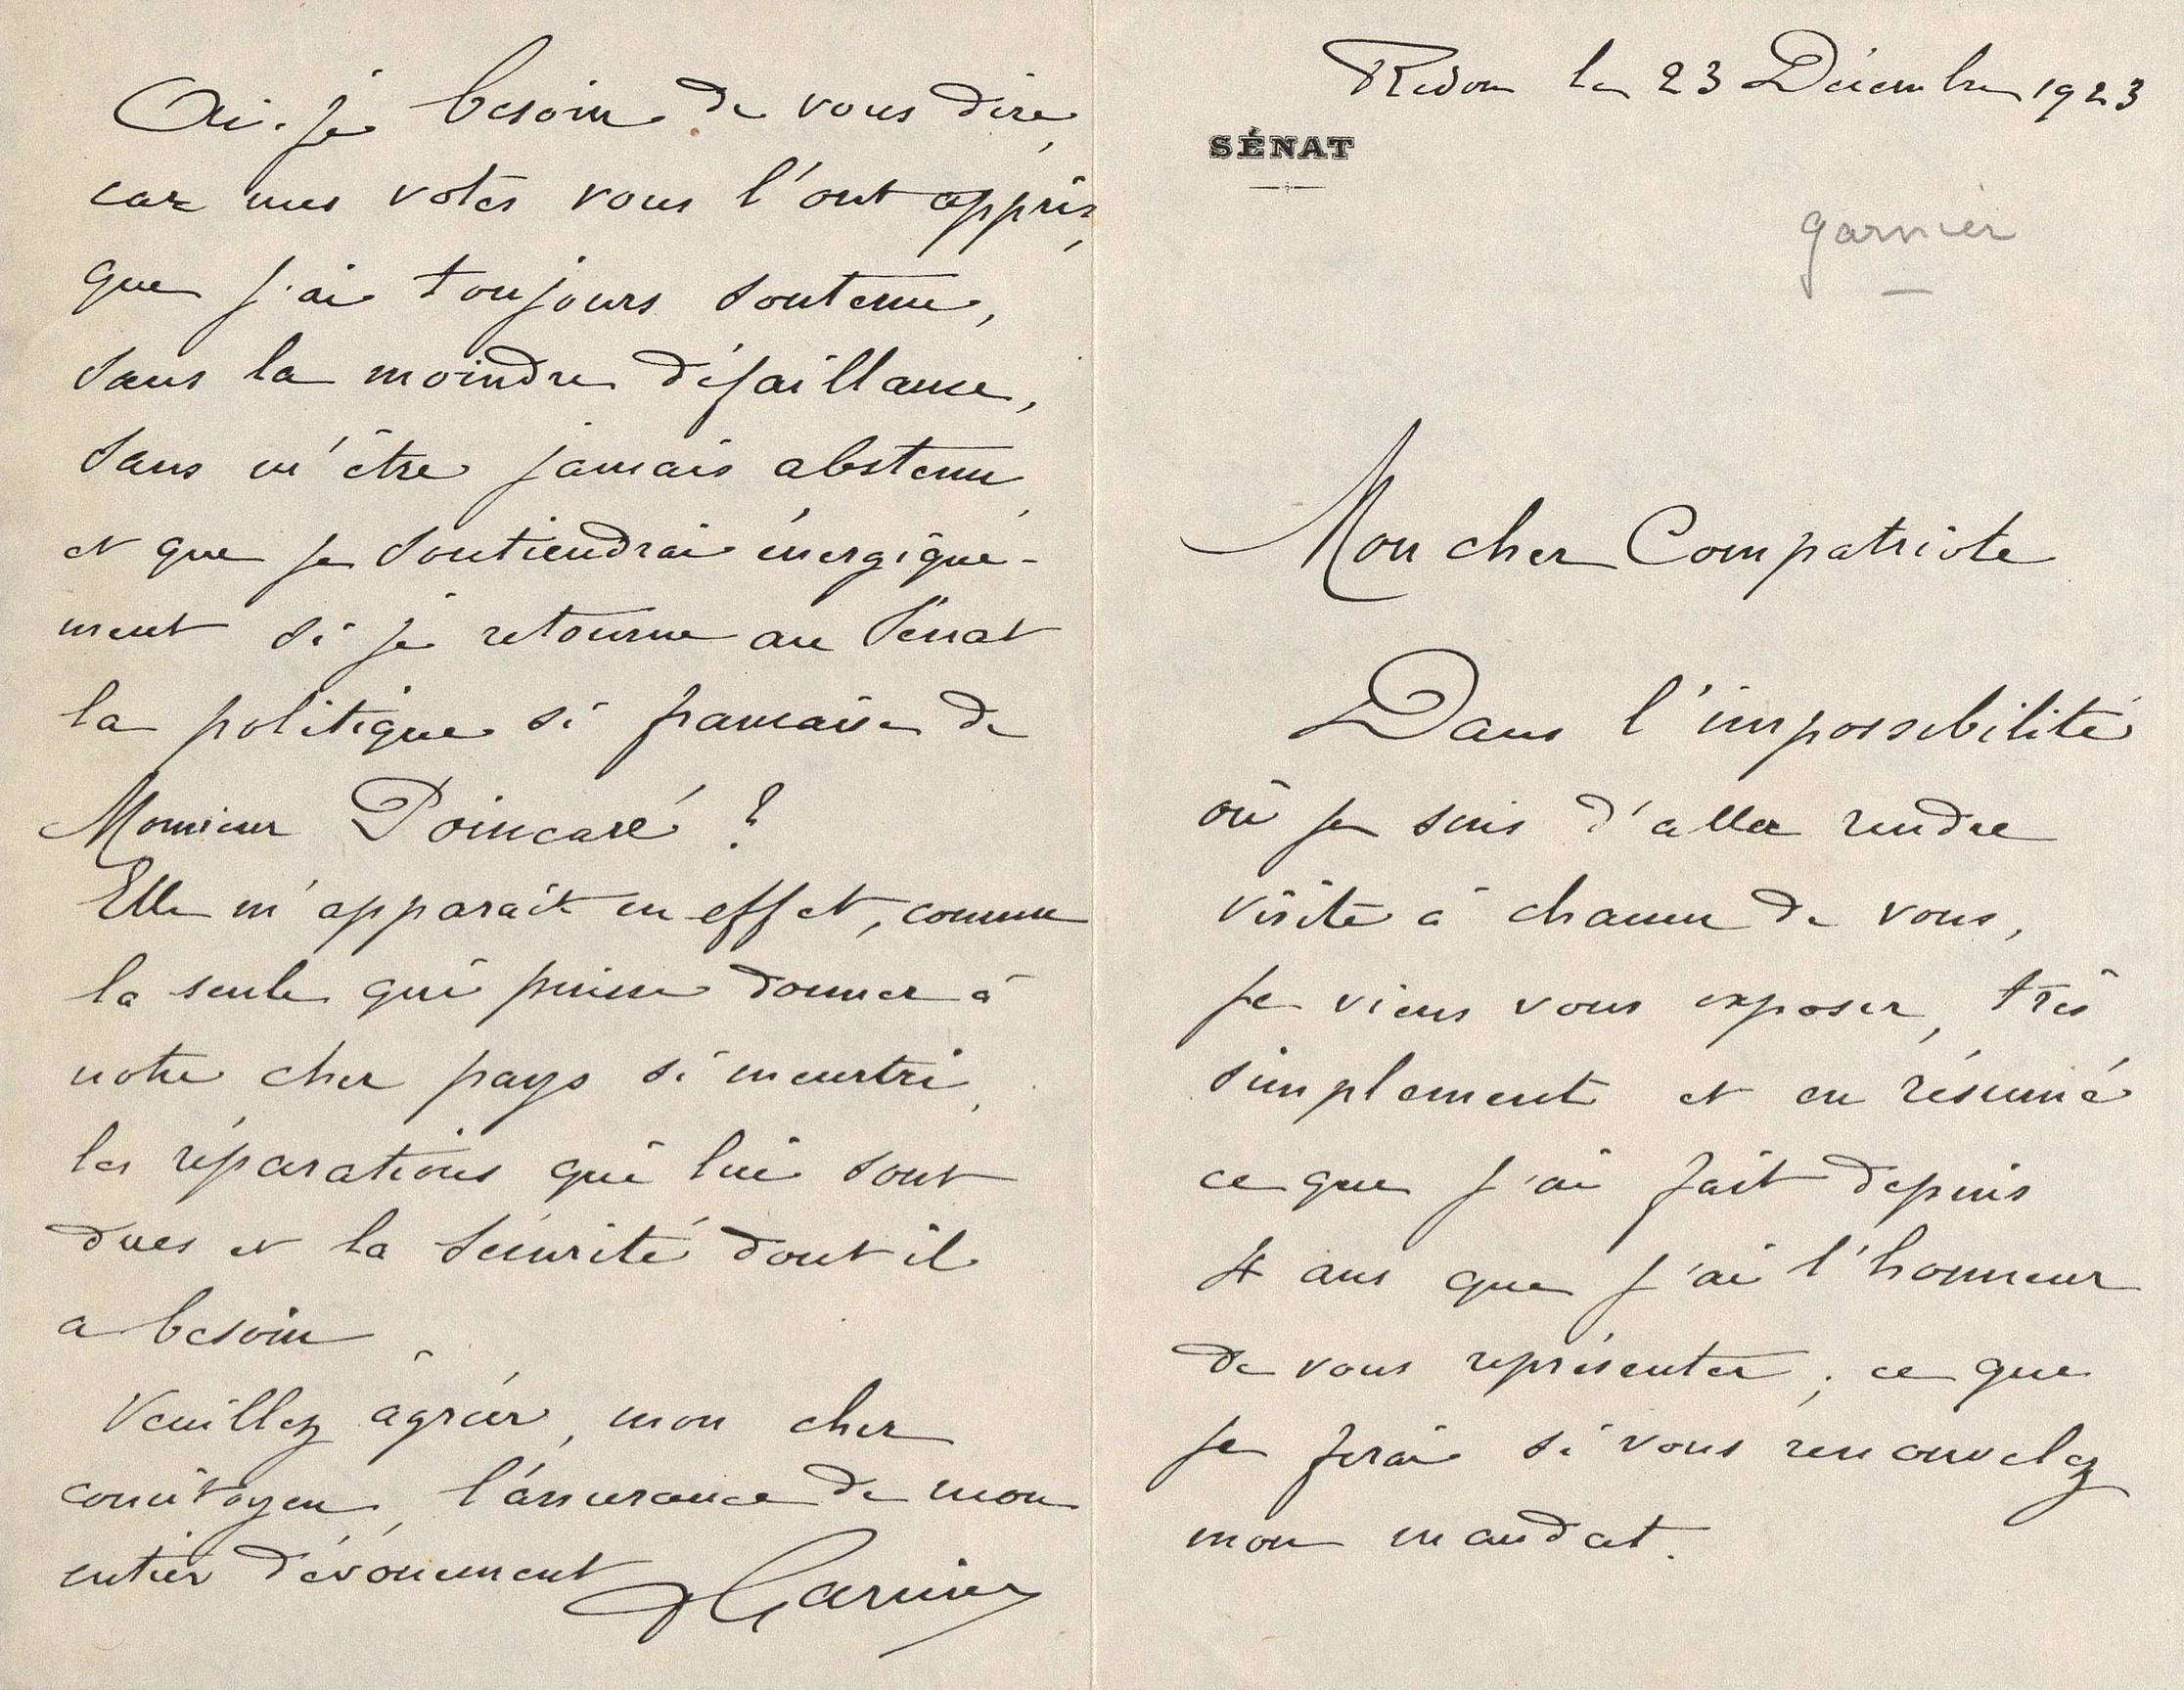 Redon le 23 Décembre 1923
SÉNAT
garnier
Mon cher Compatriote
Dans l'impossibilité
où je suis d'aller rendre
visite à chacun de vous,
je viens vous exposer, très
simplement et en résumé
ce que j'ai fait depuis
4 ans que j'ai l'honneur
de vous représenter ; ce que
je ferai si vous renouvelez
mon mandat.
Ai-je besoin de vous dire,
car mes votes vous l'ont appris,
que j'ai toujours soutenu,
sans la moindre défaillance,
sans m'être jamais abstenu,
et que je soutiendrai énergique-
ment si je retourne au Sénat
la politique si française de
Monsieur Poincaré ?
Elle m'apparait en effet, comme
la seule qui puisse donner à
notre cher pays si meurtri,
les réparations qui lui sont
dues et la sécurité dont il
a besoin.
Veuillez agréer, mon cher
concitoyen, l'assurance de mon
entier dévouement Garnier